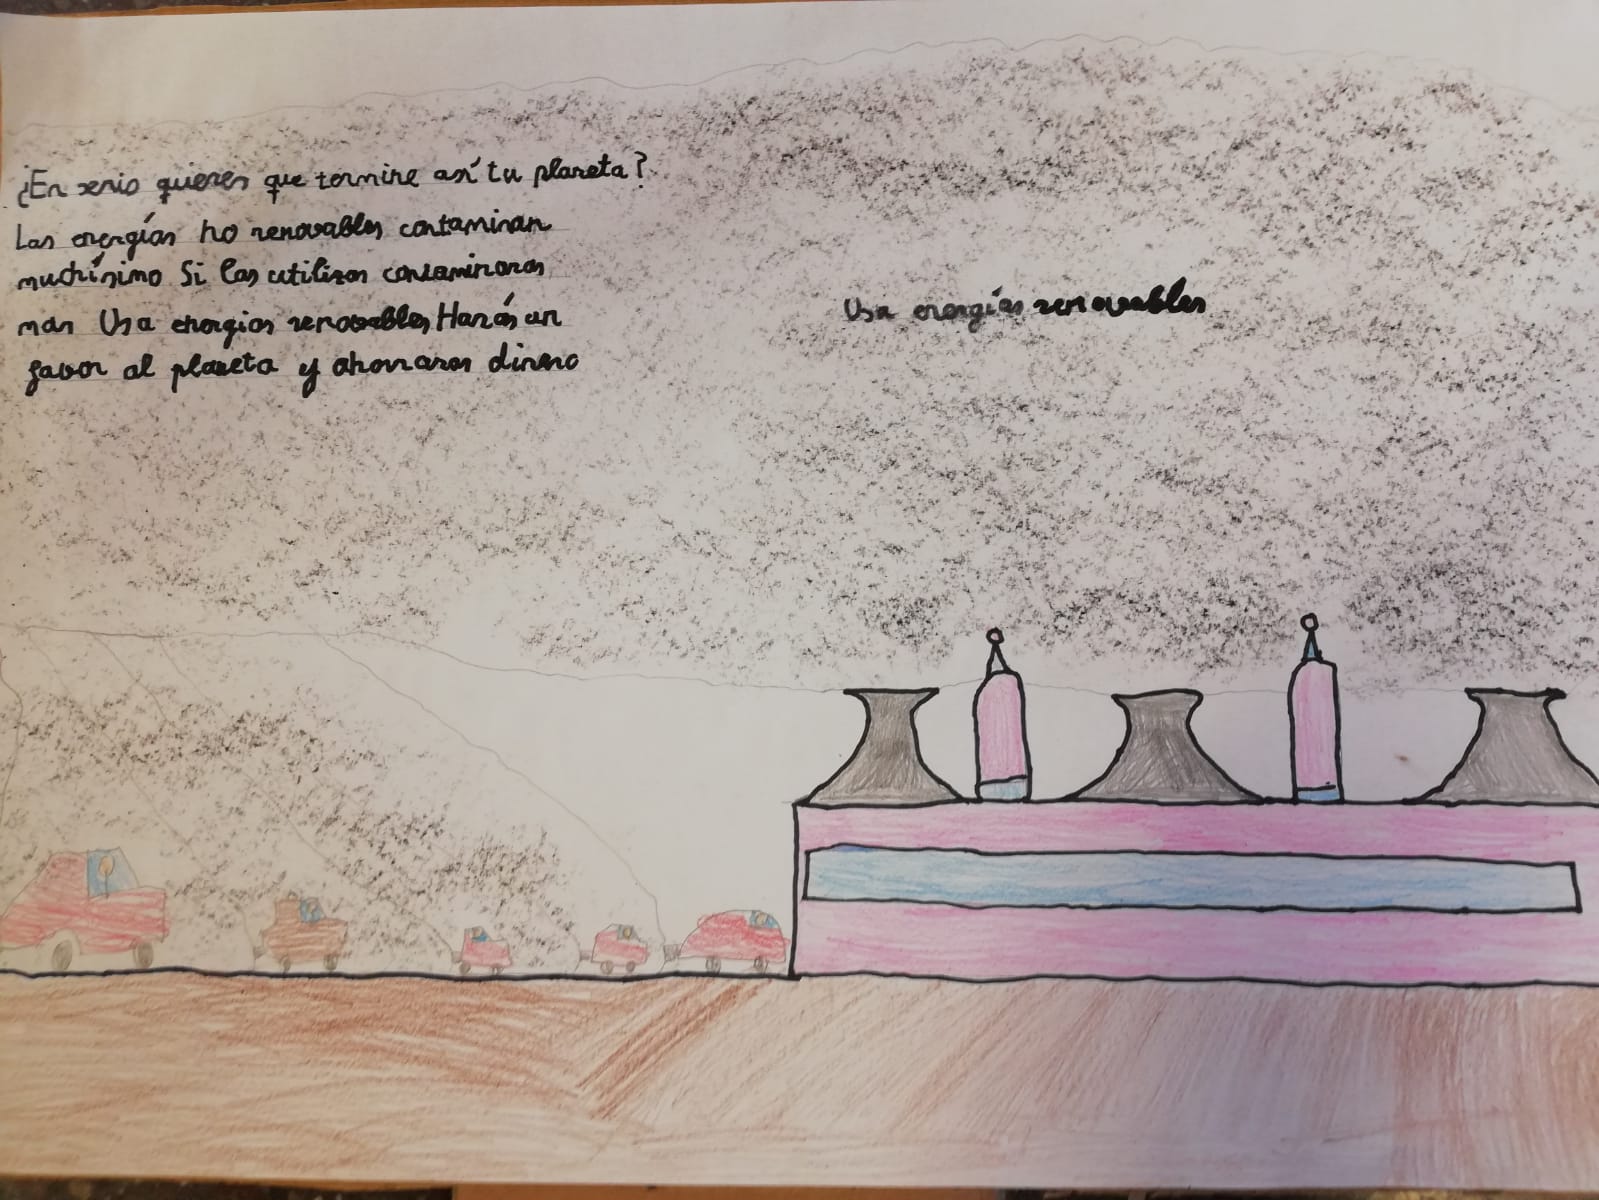 ¿En serio quieres que termine así tu planeta?
Las energías no renovables contaminan
muchísimo Si las utilizas contaminaras
mas Usa energias renovables Harás un
favor al planeta y ahorraras dinero
Usa energías renovables